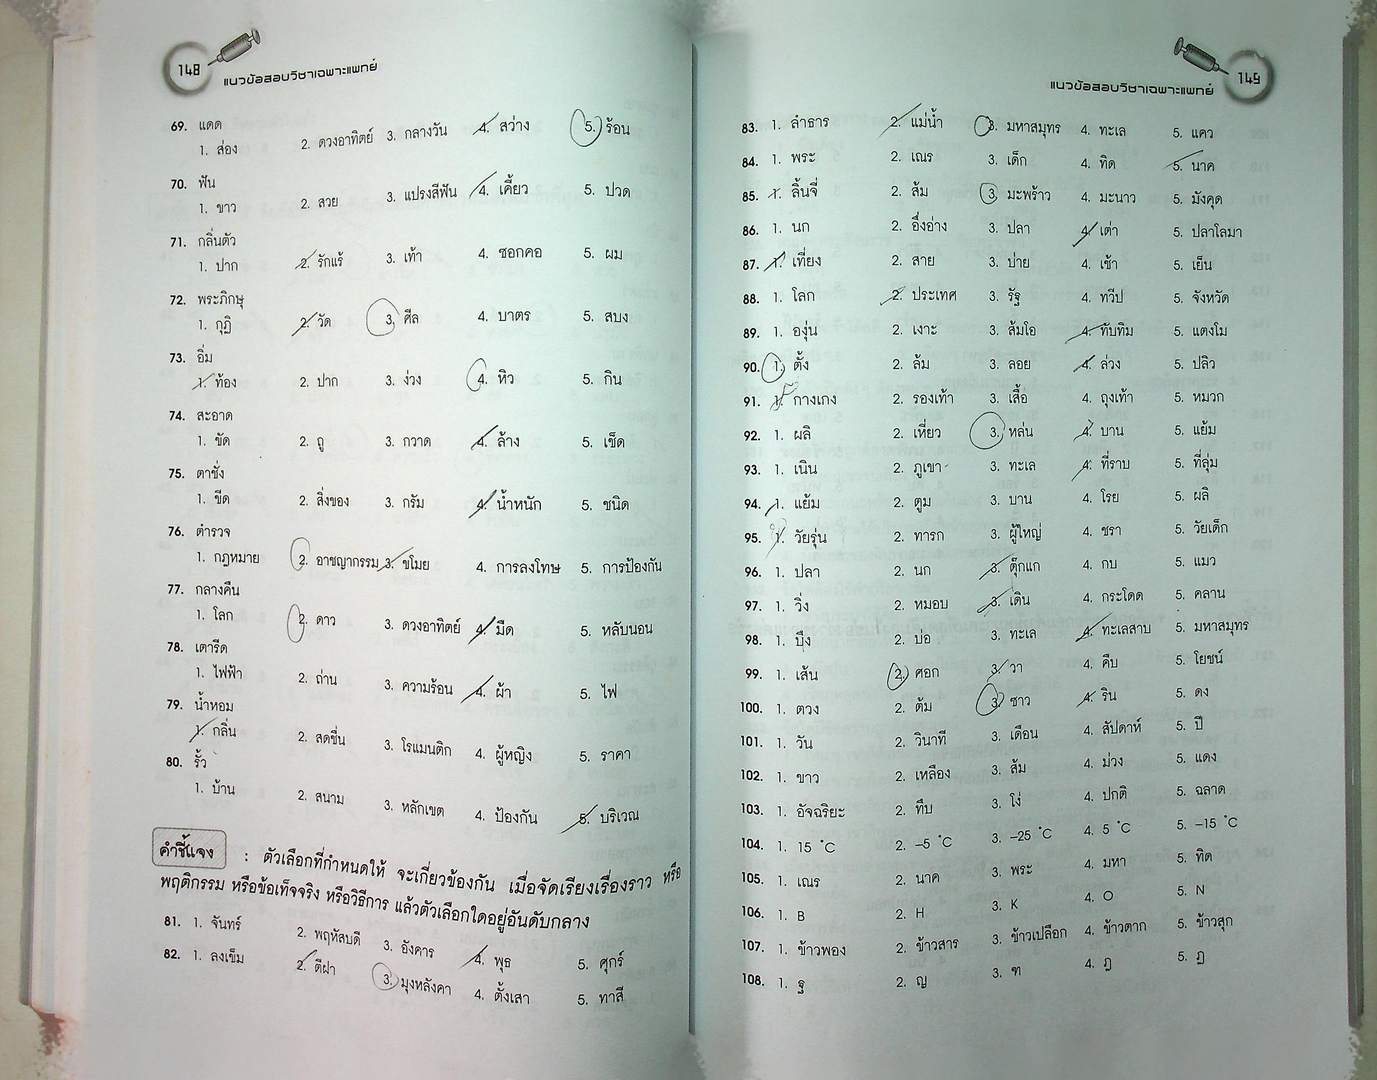 148
แนวข้อสอบวิชาเฉพาะแพทย์
69. แดด
1. ส่อง 2. ดวงอาทิตย์ 3. กลางวัน 4. สว่าง 5. ร้อน
70. ฟัน
1. ขาว 2. สวย 3. แปรงสีฟัน 4. เคี้ยว 5. ปวด
71. กลิ่นตัว
1. ปาก 2. รักแร้ 3. เท้า 4. ซอกคอ 5. ผม
72. พระภิกษุ
1. กุฏิ 2. วัด 3. ศีล 4. บาตร 5. สบง
73. อิ่ม
1. ท้อง 2. ปาก 3. ง่วง 4. หิว 5. กิน
74. สะอาด
1. ขัด 2. ถู 3. กวาด 4. ล้าง 5. เช็ด
75. ตาชั่ง
1. ขีด 2. สิ่งของ 3. กรัม 4. น้ำหนัก 5. ชนิด
76. ตำรวจ
1. กฎหมาย 2. อาชญากรรม 3. ขโมย 4. การลงโทษ 5. การป้องกัน
77. กลางคืน
1. โลก 2. ดาว 3. ดวงอาทิตย์ 4. มืด 5. หลับนอน
78. เตารีด
1. ไฟฟ้า 2. ถ่าน 3. ความร้อน 4. ผ้า 5. ไฟ
79. น้ำหอม
1. กลิ่น 2. สดชื่น 3. โรแมนติก 4. ผู้หญิง 5. ราคา
80. รั้ว
1. บ้าน 2. สนาม 3. หลักเขต 4. ป้องกัน 5. บริเวณ
คำชี้แจง : ตัวเลือกที่กำหนดให้ จะเกี่ยวข้องกัน เมื่อจัดเรียงเรื่องราว หรือ
พฤติกรรม หรือข้อเท็จจริง หรือวิธีการ แล้วตัวเลือกใดอยู่อันดับกลาง
81. 1. จันทร์ 2. พฤหัสบดี 3. อังคาร 4. พุธ 5. ศุกร์
82. 1. ลงเข็ม 2. ตีฝา 3. มุงหลังคา 4. ตั้งเสา 5. ทาสี
149
แนวข้อสอบวิชาเฉพาะแพทย์
83. 1. ลำธาร 2. แม่น้ำ 3. มหาสมุทร 4. ทะเล 5. แคว
84. 1. พระ 2. เณร 3. เด็ก 4. ทิด 5. นาค
85. 1. ลิ้นจี่ 2. ส้ม 3. มะพร้าว 4. มะนาว 5. มังคุด
86. 1. นก 2. อึ่งอ่าง 3. ปลา 4. เต่า 5. ปลาโลมา
87. 1. เที่ยง 2. สาย 3. บ่าย 4. เช้า 5. เย็น
88. 1. โลก 2. ประเทศ 3. รัฐ 4. ทวีป 5. จังหวัด
89. 1. องุ่น 2. เงาะ 3. ส้มโอ 4. ทับทิม 5. แตงโม
90. 1. ตั้ง 2. ล้ม 3. ลอย 4. ล่วง 5. ปลิว
91. 1. กางเกง 2. รองเท้า 3. เสื้อ 4. ถุงเท้า 5. หมวก
92. 1. ผลิ 2. เหี่ยว 3. หล่น 4. บาน 5. แย้ม
93. 1. เนิน 2. ภูเขา 3. ทะเล 4. ที่ราบ 5. ที่ลุ่ม
94. 1. แย้ม 2. ตูม 3. บาน 4. โรย 5. ผลิ
95. 1. วัยรุ่น 2. ทารก 3. ผู้ใหญ่ 4. ชรา 5. วัยเด็ก
96. 1. ปลา 2. นก 3. ตุ๊กแก 4. กบ 5. แมว
97. 1. วิ่ง 2. หมอบ 3. เดิน 4. กระโดด 5. คลาน
98. 1. บึง 2. บ่อ 3. ทะเล 4. ทะเลสาบ 5. มหาสมุทร
99. 1. เส้น 2. ศอก 3. วา 4. คืบ 5. โยชน์
100. 1. ตวง 2. ต้ม 3. ซาว 4. ริน 5. ดง
101. 1. วัน 2. วินาที 3. เดือน 4. สัปดาห์ 5. ปี
102. 1. ขาว 2. เหลือง 3. ส้ม 4. ม่วง 5. แดง
103. 1. อัจฉริยะ 2. ทึบ 3. โง่ 4. ปกติ 5. ฉลาด
104. 1. 15 °C 2. –5 °C 3. –25 °C 4. 5 °C 5. –15 °C
105. 1. เณร 2. นาค 3. พระ 4. มหา 5. ทิด
106. 1. B 2. H 3. K 4. O 5. N
107. 1. ข้าวพอง 2. ข้าวสาร 3. ข้าวเปลือก 4. ข้าวตาก 5. ข้าวสุก
108. 1. ฐ 2. ญ 3. ฑ 4. ฎ 5. ฏ